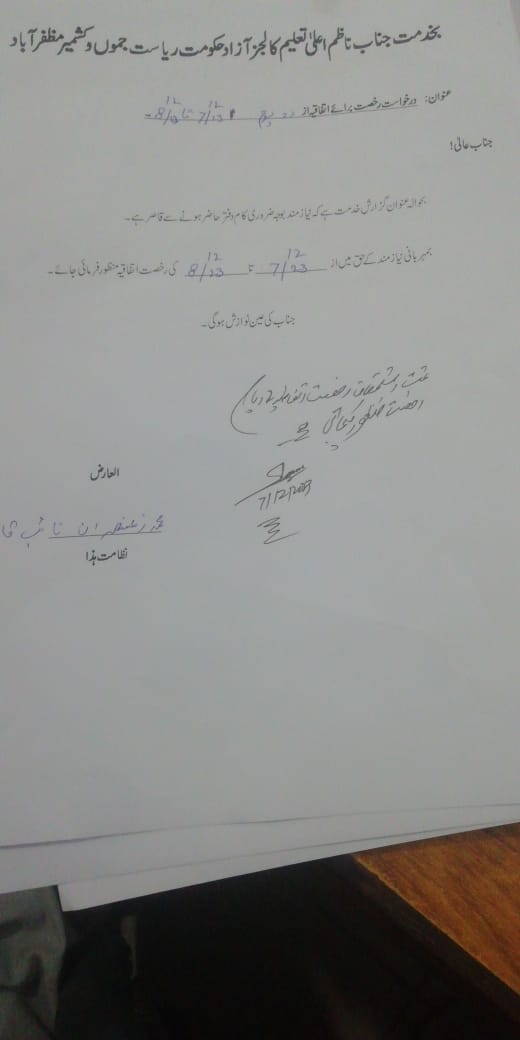 بخدمت جناب ناظم اعلیٰ تعلیم کالجز آزاد حکومت ریاست جموں و کشمیر مظفر آباد
عنوان: درخواست رخصت برائے اتفاقیہ از 7/12/23 تا 8/12/23۔
جناب عالی!
بحوالہ عنوان گزارش خدمت ہے کہ نیاز مند بوجہ ضروری کام دفتر حاضر ہونے سے قاصر ہے۔
بمہربانی نیاز مند کے حق میں از 7/12/23 تا 8/12/23 کی رخصت اتفاقیہ منظور فرمائی جائے۔
جناب کی عین نوازش ہوگی۔
رخصت
7/12/2023
العارض
محمد نائب
نظامت ہذا